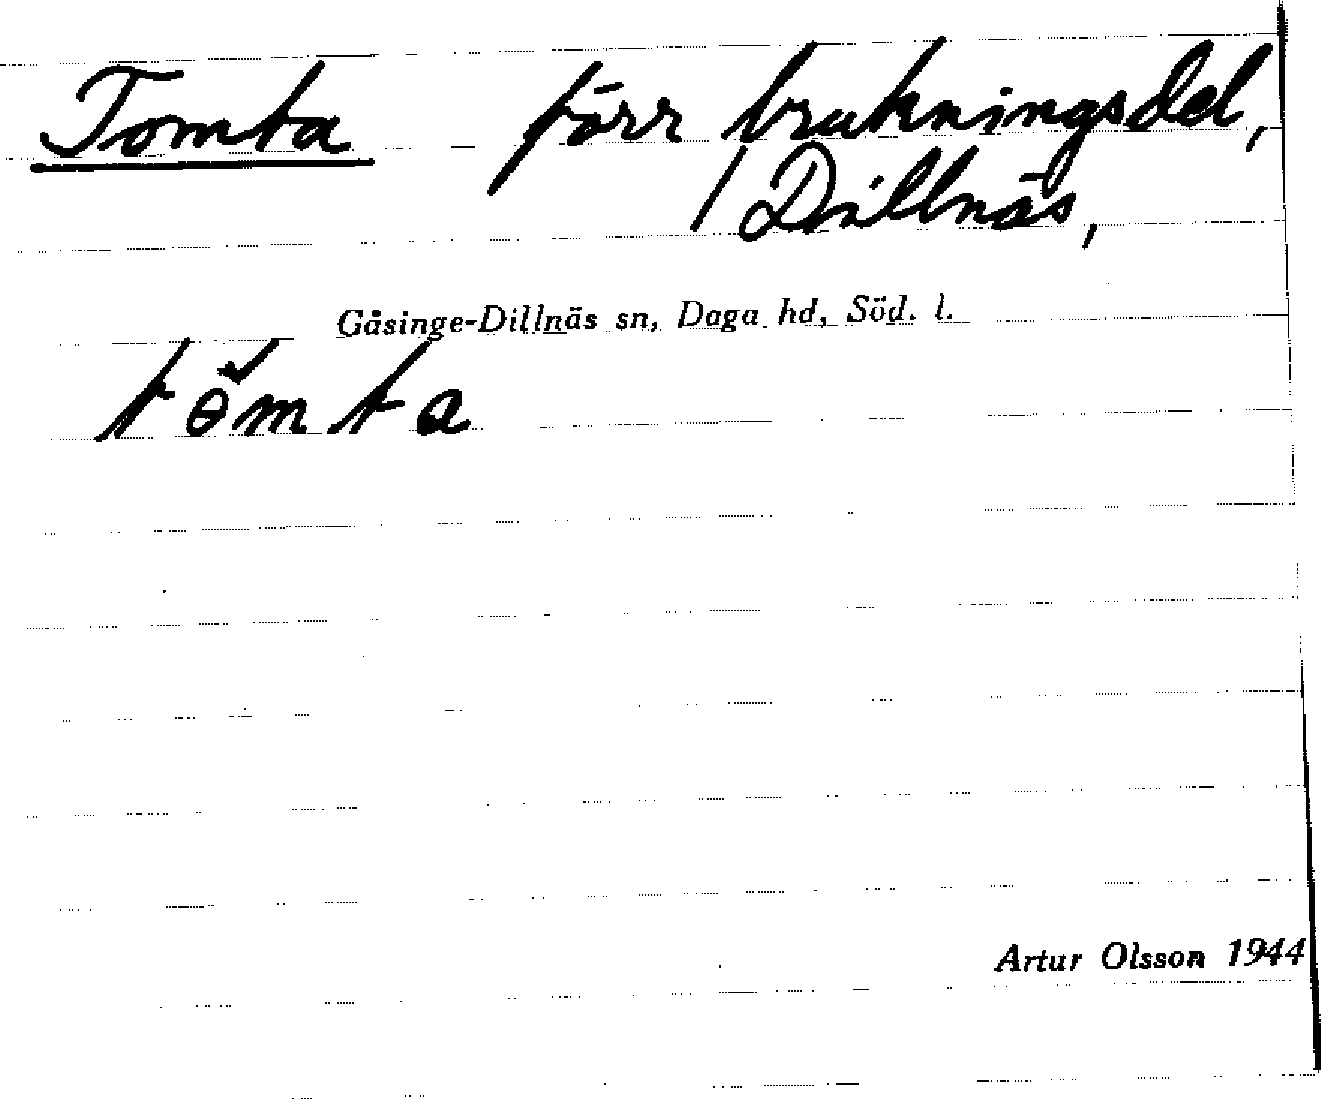 Tomta förr brukningsdel,
/ Dillnäs,
Gåsinge-Dillnäs sn, Daga hd, Söd. l.
tɵ̌mta
Artur Olsson 1944